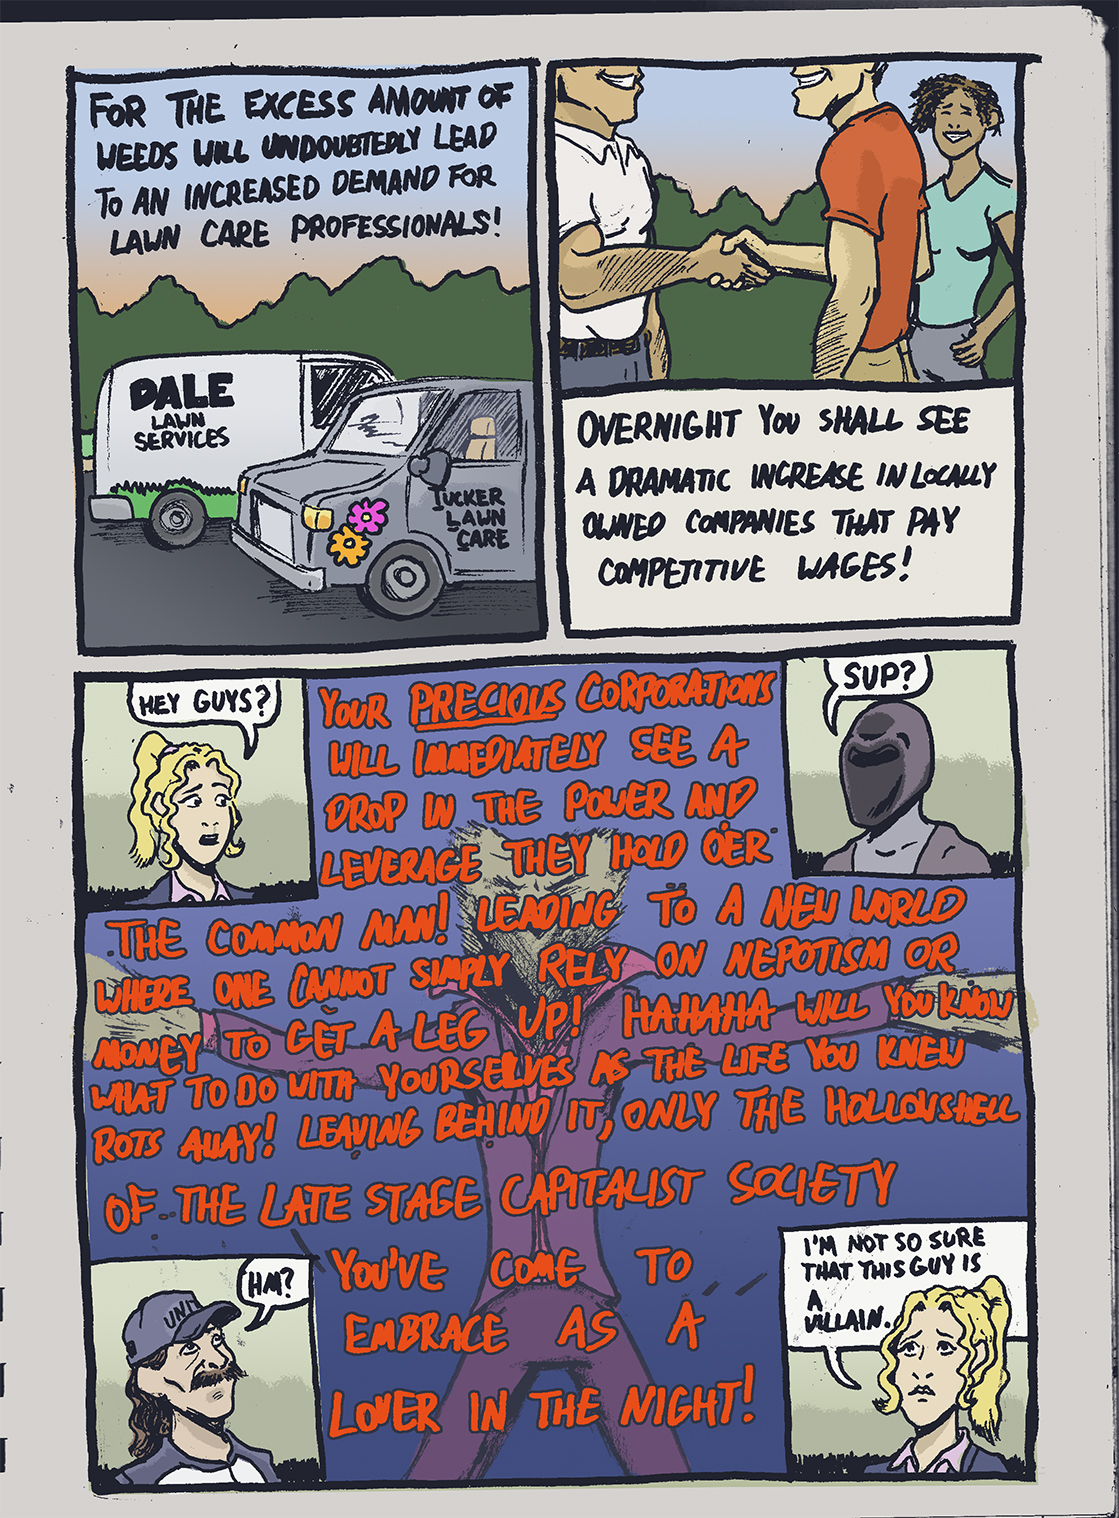 FOR THE EXCESS AMOUNT OF
WEEDS WILL UNDOUBTEDLY LEAD
TO AN INCREASED DEMAND FOR
LAWN CARE PROFESSIONALS!
DALE
LAWN
SERVICES
TUCKER
LAWN
CARE
OVERNIGHT YOU SHALL SEE
A DRAMATIC INCREASE IN LOCALLY
OWNED COMPANIES THAT PAY
COMPETITIVE WAGES!
HEY GUYS?
YOUR PRECIOUS CORPORATIONS
WILL IMMEDIATELY SEE A
DROP IN THE POWER AND
LEVERAGE THEY HOLD O'ER
SUP?
THE COMMON MAN! LEADING TO A NEW WORLD
WHERE ONE CANNOT SIMPLY RELY ON NEPOTISM OR
MONEY TO GET A LEG UP! HAHAHA WILL YOU KNOW
WHAT TO DO WITH YOURSELVES AS THE LIFE YOU KNEW
ROTS AWAY! LEAVING BEHIND IT, ONLY THE HOLLOW SHELL
OF THE LATE STAGE CAPITALIST SOCIETY
YOU'VE COME TO
EMBRACE AS A
LOVER IN THE NIGHT!
HM?
UNIT
I'M NOT SO SURE
THAT THIS GUY IS
A
VILLAIN.